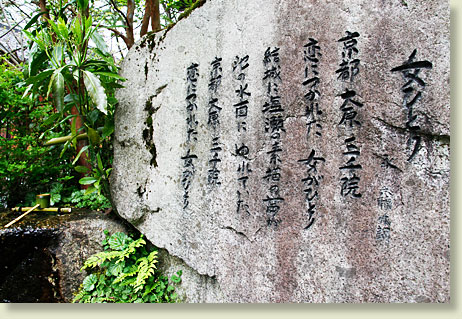 女ひとり
京都 大原 三千院
恋につかれた 女がひとり
結城に 塩瀬の 素描の 帯が
池の水面に ゆれていた
京都 大原 三千院
恋につかれた 女がひとり